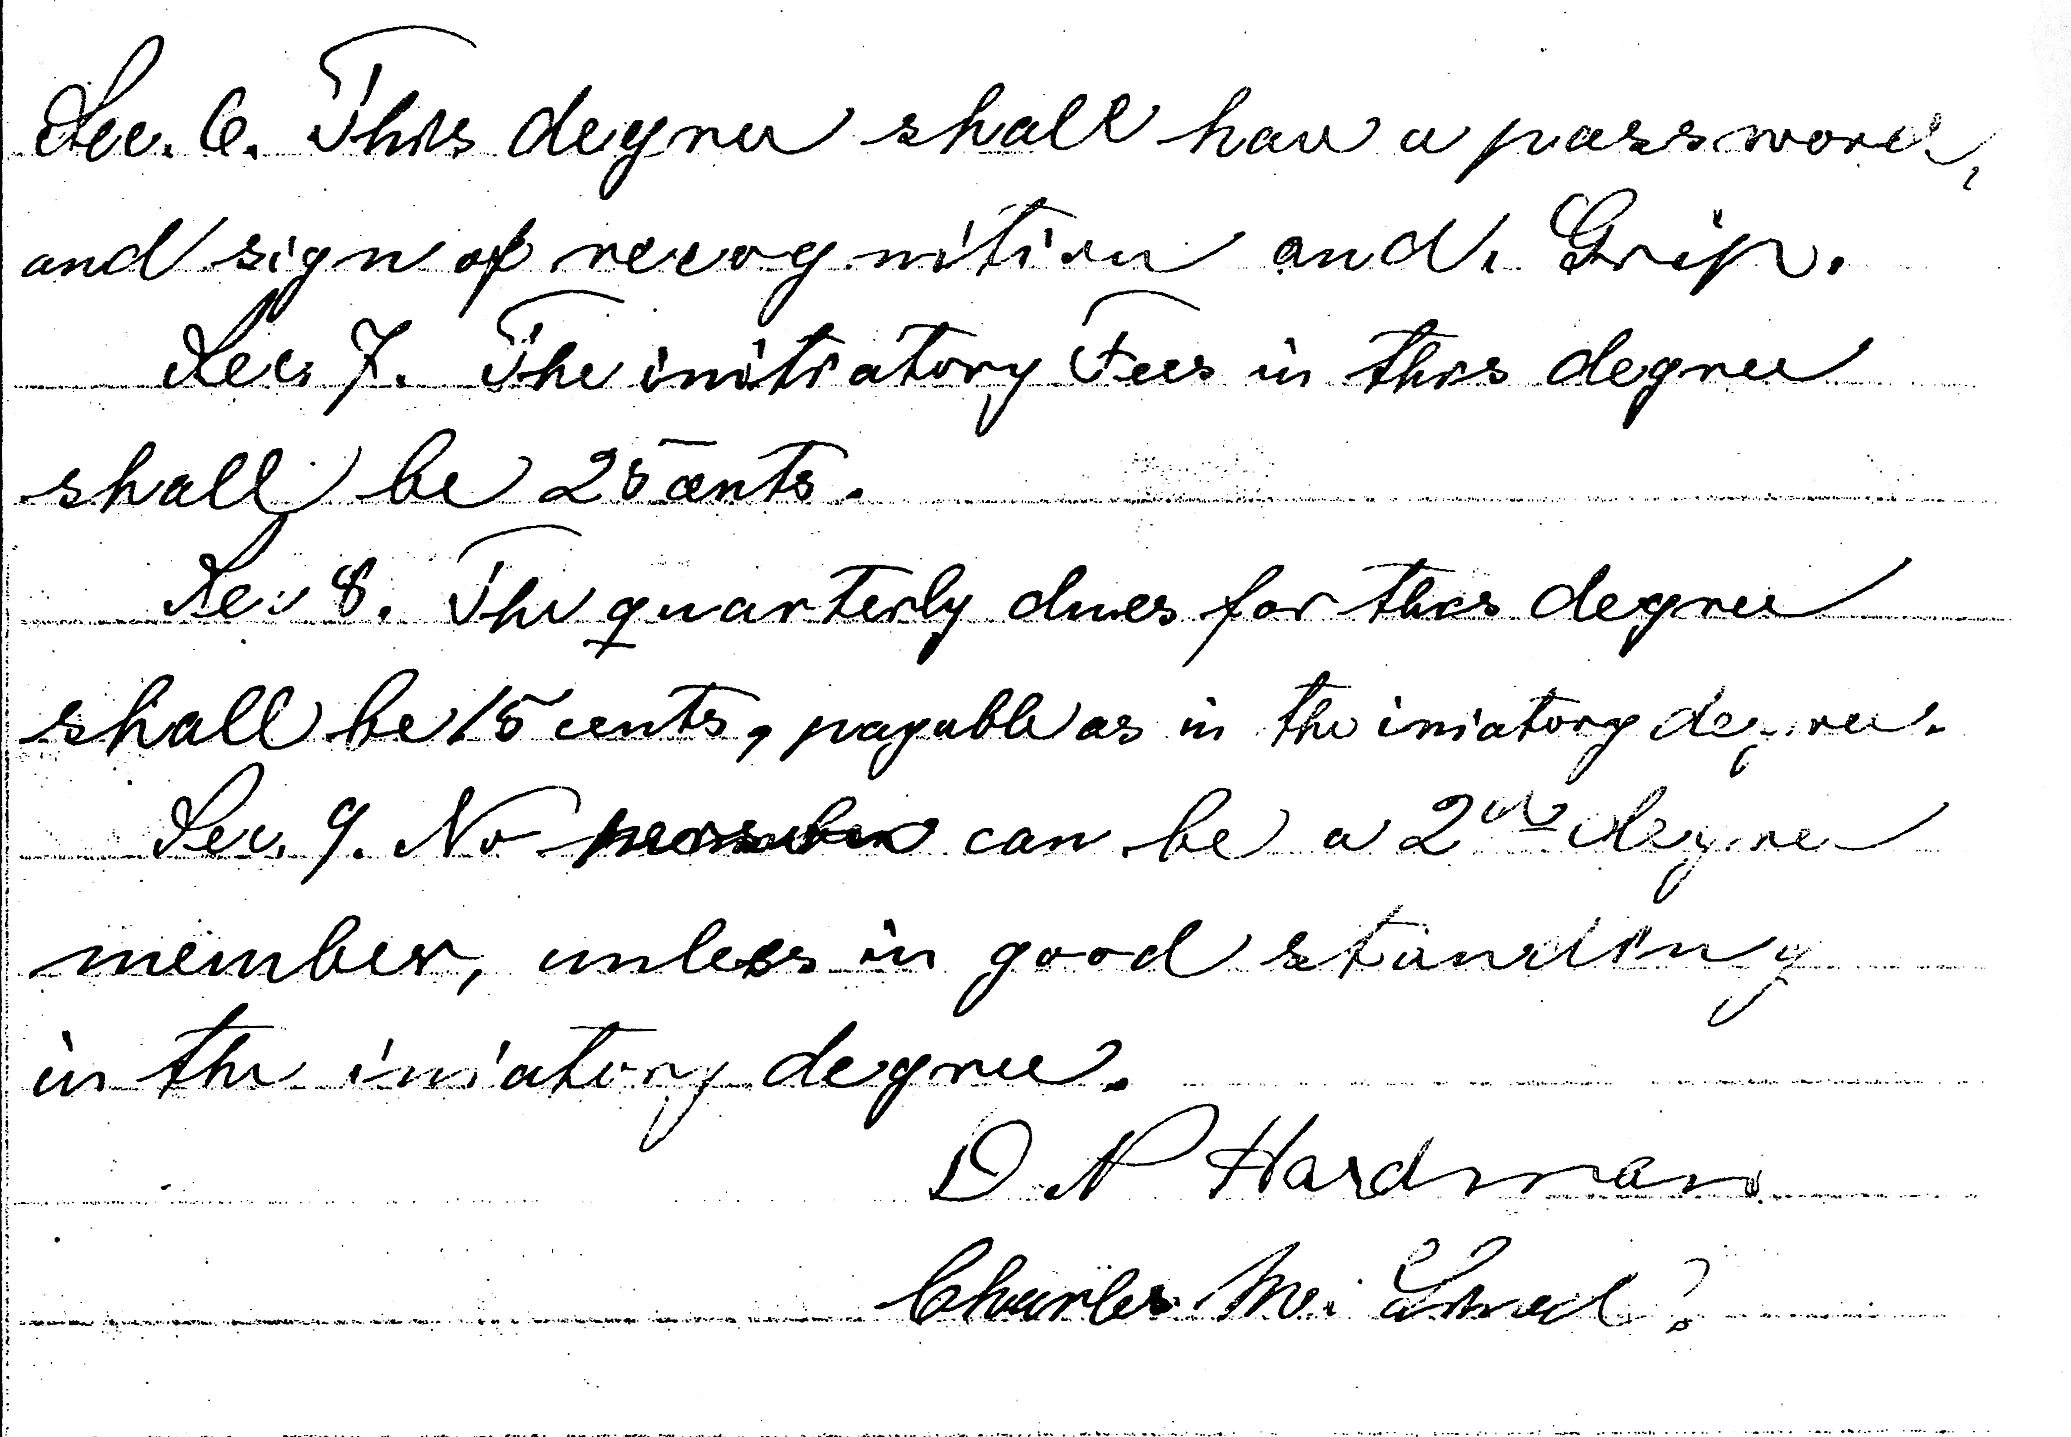 Sec. 6. This degree shall have a password,
and sign of recognition and. Grip.
Sec. 7. The initiatory Fees in this degree
shall be 25 cents.
Sec 8. The quarterly dues for this degree
shall be 15 cents, payable as in the iniatory degree.
Sec. 9. No can be a 2nd degree
member, unless in good standing
in the iniatory degree.
D N Hardman
Charles M.